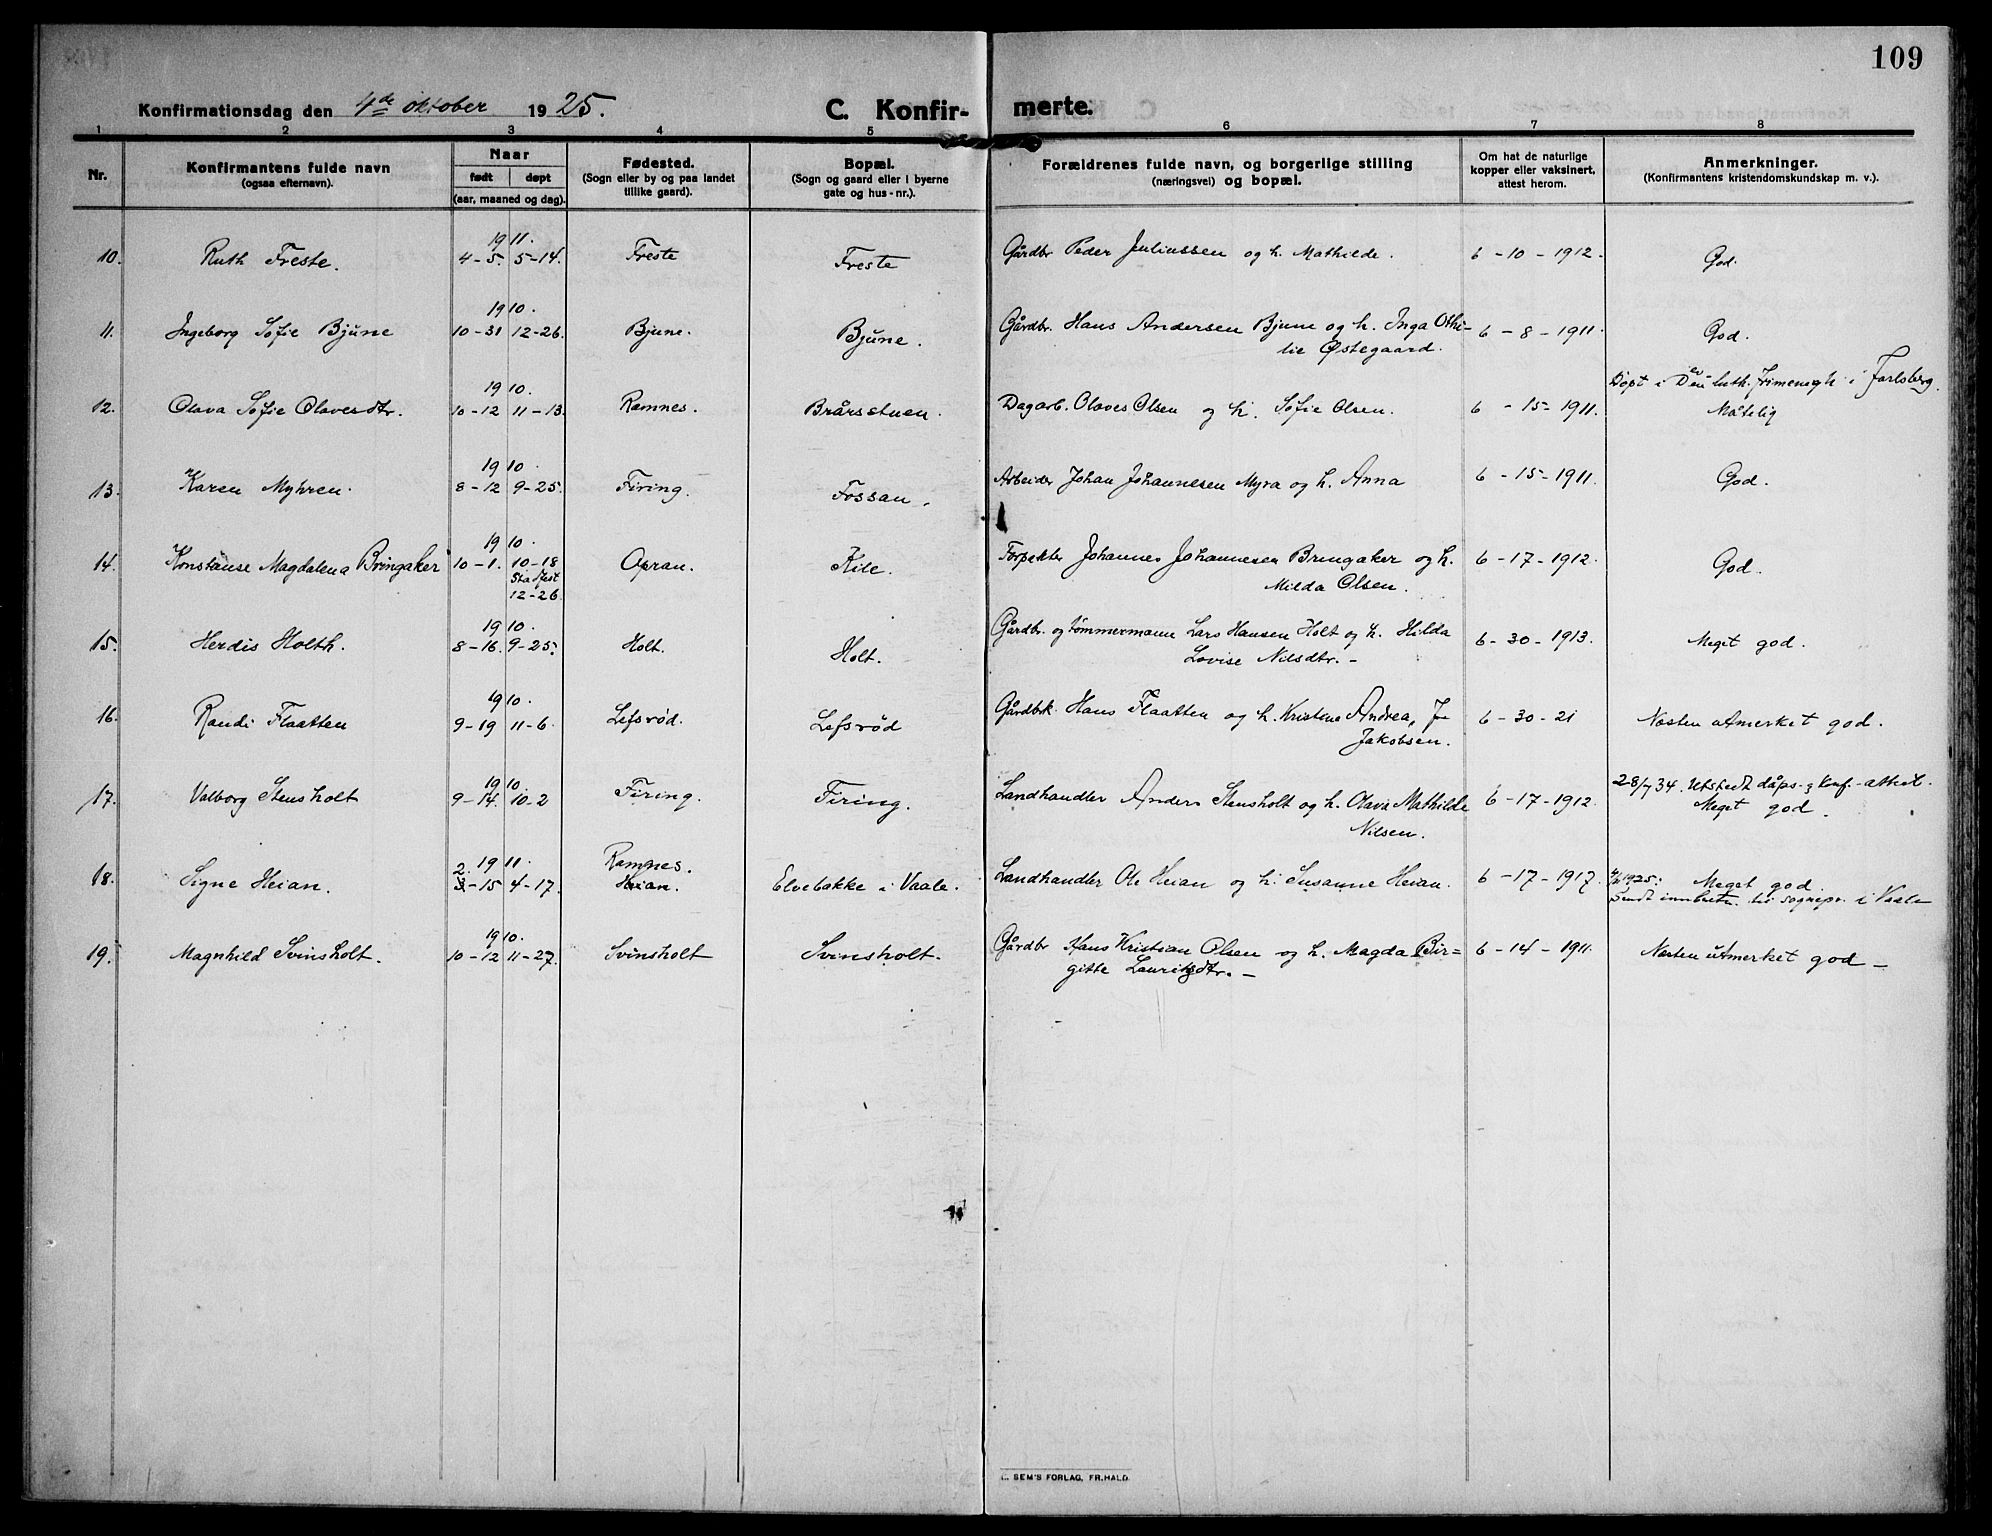 109
Konfirmationsdag den 4de oktober 1925. C. Konfirmerte.
1 2 3 4 5 6 7 8
Nr.
Konfirmantens fulde navn
(ogsaa efternavn).
Naar
født døpt
(aar, maaned og dag).
Fødested.
(Sogn eller by og paa landet
tillike gaard).
Bopæl.
(Sogn og gaard eller i byerne
gate og hus-nr.).
Forældrenes fulde navn, og borgerlige stilling
(næringsvei) og bopæl.
Om hat de naturlige
kopper eller vaksinert,
attest herom.
Anmerkninger.
(Konfirmantens kristendomskundskap m. v.).
1911.
10. Ruth Freste. 4-5. 5-14. Freste Freste Gårdbr Peder Juliussen og h. Mathilde. 6-10-1912. God.
1910.
11. Ingeborg Sofie Bjune 10-31 12-26. Bjune. Bjune. Gårdbr. Hans Andersen Bjune og h. Inga Othi- 6-8-1911. God.
lie Østegaard.
1910. Døpt i Den ev luth. frimenigh i Jarlsberg.
12. Olava Sofie Olavesdtr. 10-12 11-13. Ramnes. Brårsstuen. Dagarb. Olaves Olsen og h. Sofie Olsen. 6-15-1911. Måtelig
1910.
13. Karen Myhren. 8-12 9-25. Firing. Fossan. Arbeider Johan Johannesen Myra og h. Anna 6-15-1911. God.
1910.
14. Konstanse Magdalena Bringaker 10-1. 10-18 Opran. Kile. Forpakter Johannes Johannesen Bringaker og h. 6-17-1912. God.
Stadfest
12-26. Milda Olsen.
1910.
15. Herdis Holth. 8-16. 9-25. Holt. Holt. Gårdbr. og tømmermann Lars Hansen Holt og h. Hilda 6-30-1913. Meget god.
Lovise Nilsdtr. -
1910.
16. Randi Flaatten 9-19 11-6. Lefsrød. Lefsrød Gårdbrk. Hans Flaatten og h. Kristine Andrea, f. 6-30-21 Næsten utmerket god.
Jakobsen.
1910. 28/7 34. Utstedt dåps- & konf.-attest.
17. Valborg Stensholt 9-14. 10-2 Firing. Firing. Landhandler Anders Stensholt og h. Olava Mathilde 6-17-1912. Meget god.
Nilsen.
1911. Ramnes.
2.
18. Signe Heian. 3-15 4-17. Heian. Elvebakke i Vaale. Landhandler Ole Heian og h. Susanne Heian. 6-17-1917. 1925: Meget god.
Sendt innberetn. til sognepr. i Vaale
1910.
19. Magnhild Svinsholt. 10-12 11-27. Svinsholt Svinsholt. Gårdbr Hans Kristian Olsen og h. Magda Bir= 6-14-1911. Næsten utmerket god -
gitte Lauritsdtr. -
SEM'S FORLAG, FR.HALD.